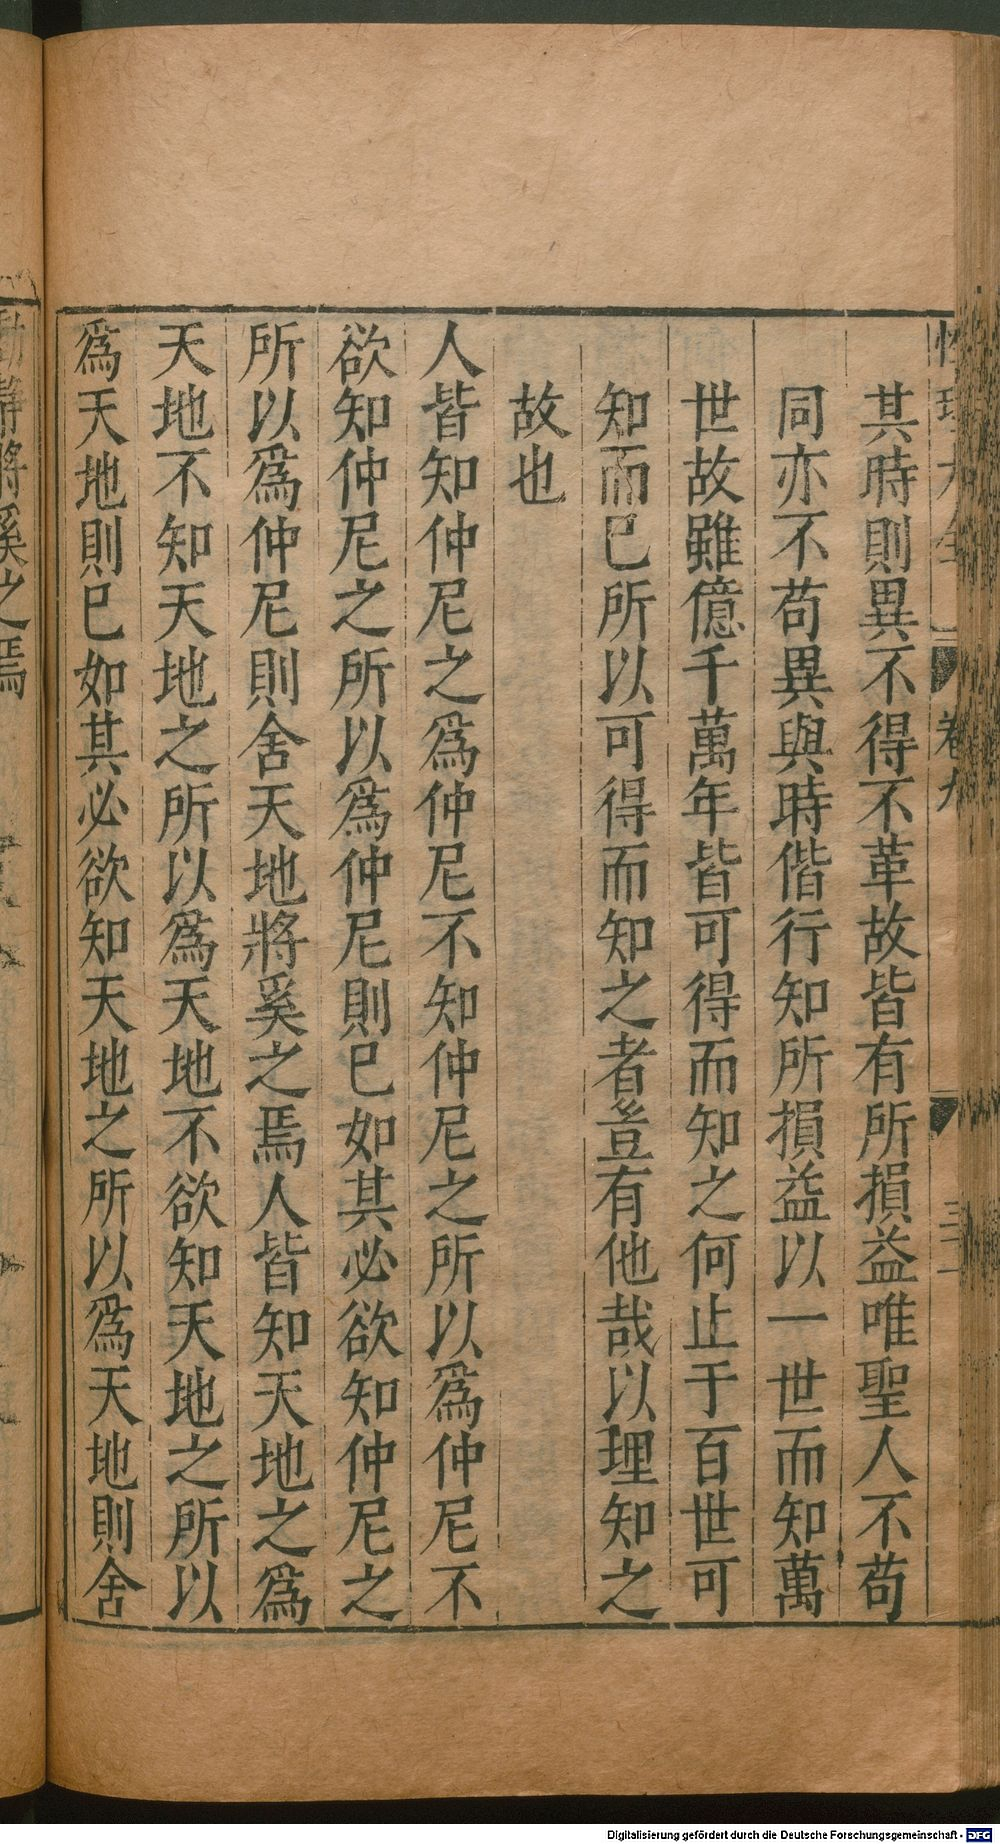 性理大全
卷九
三一
其時則異不得不革故皆有所損益唯聖人不苟
同亦不苟異與時偕行知所損益以一世而知萬
世故雖億千萬年皆可得而知之何止于百世可
知而已所以可得而知之者豈有他哉以理知之
故也
人皆知仲尼之爲仲尼不知仲尼之所以爲仲尼不
欲知仲尼之所以爲仲尼則已如其必欲知仲尼之
所以爲仲尼則舍天地將奚之焉人皆知天地之爲
天地不知天地之所以爲天地不欲知天地之所以
爲天地則已如其必欲知天地之所以爲天地則舍
動靜將奚之焉
Digitalisierung gefördert durch die Deutsche Forschungsgemeinschaft - DFG